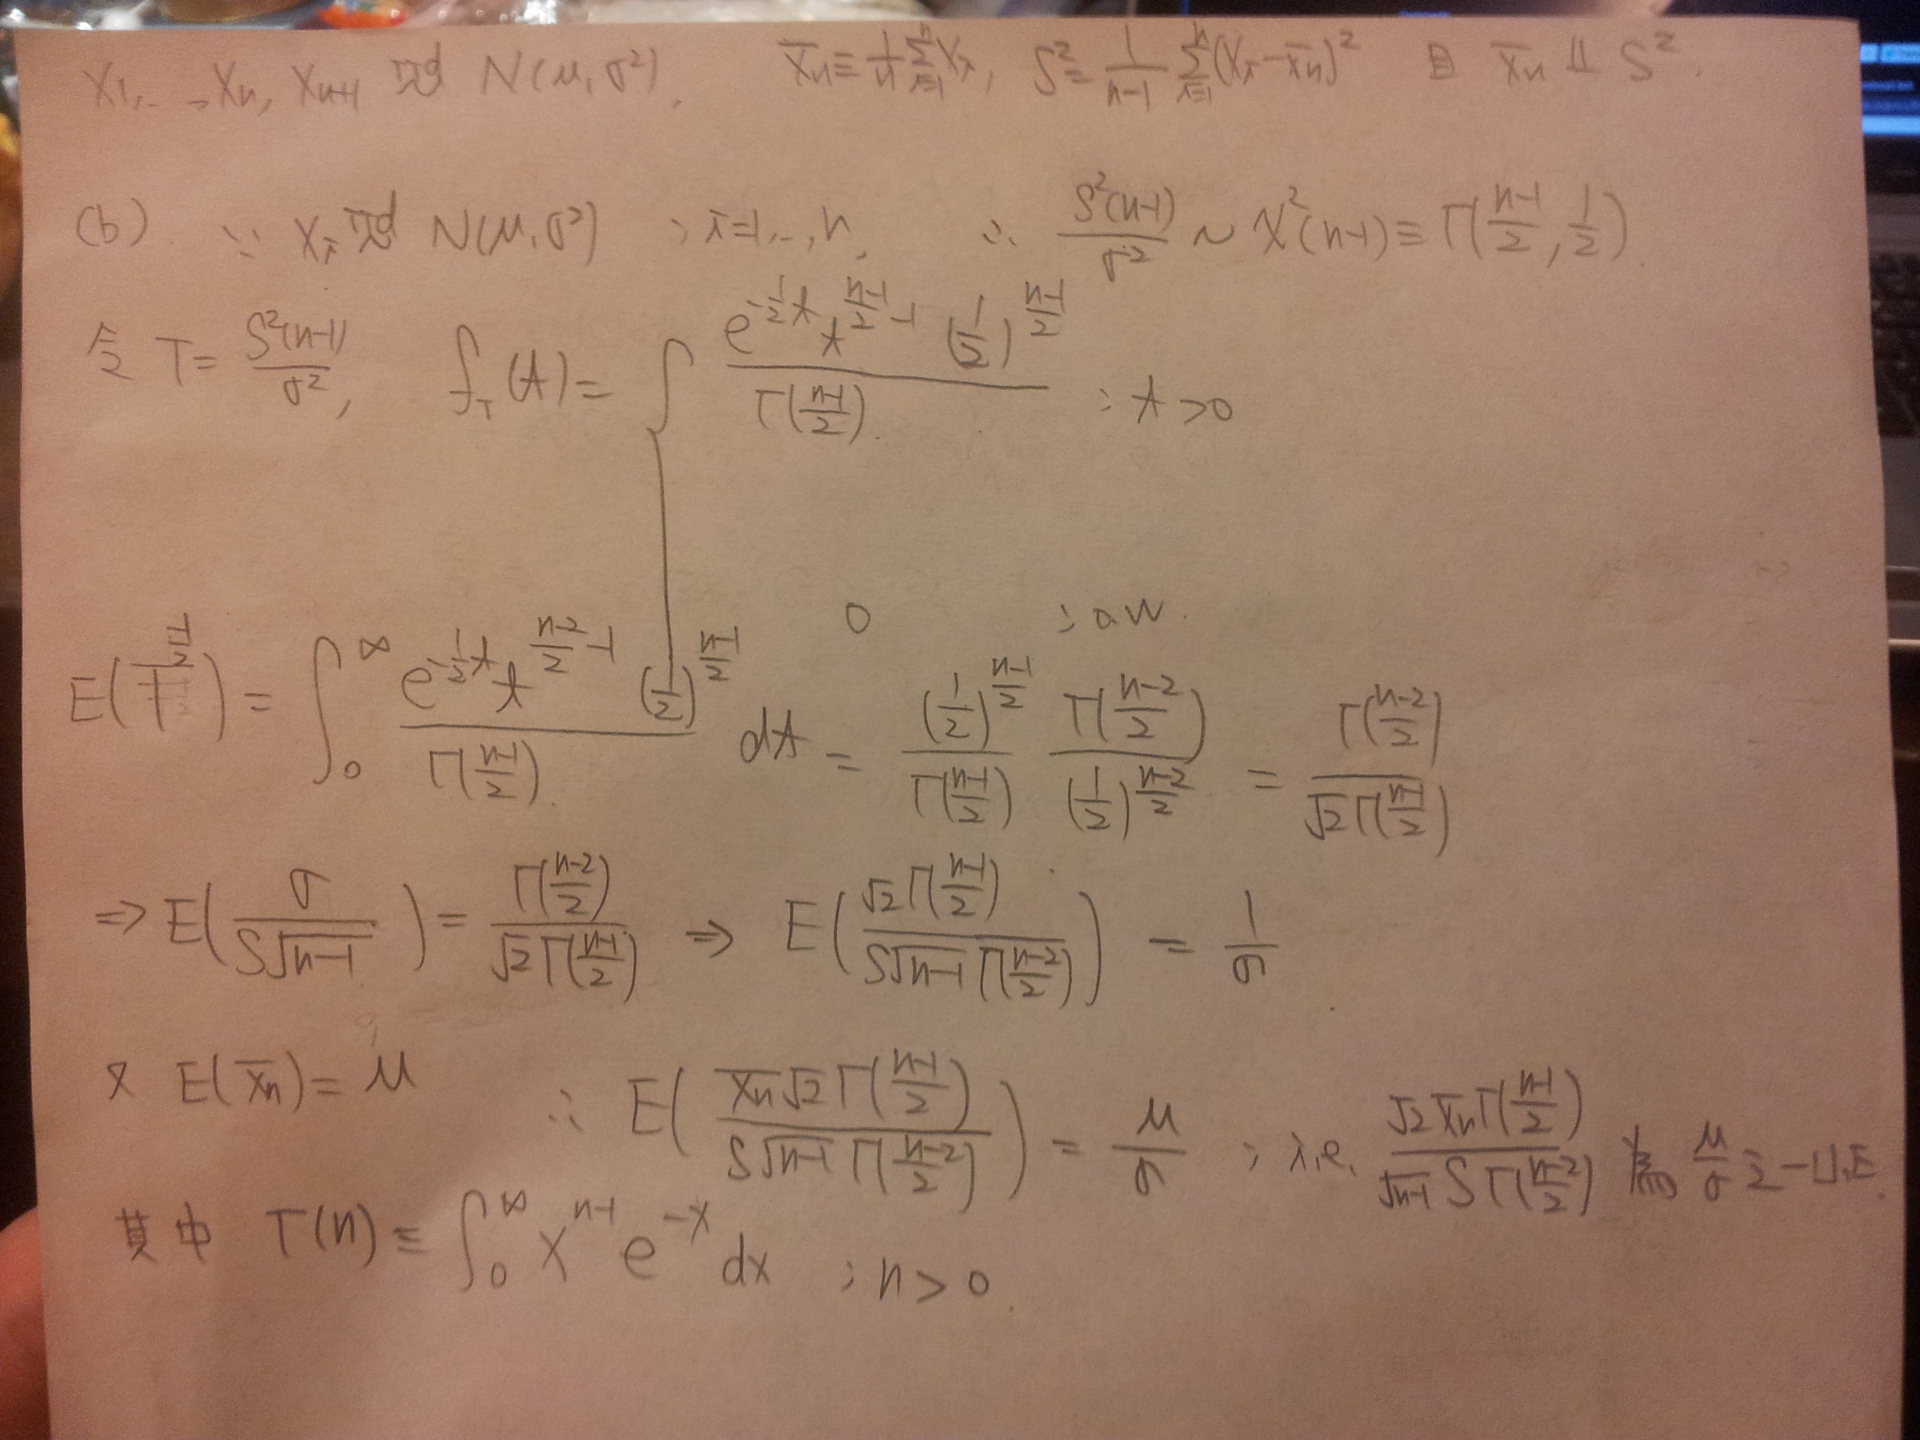 X₁, ..., Xₙ, Xₙ₊₁ iid N(μ, σ²). X̄ₙ ≡ 1/n Σᵢ₌₁ⁿ Xᵢ, S² = 1/(n-1) Σᵢ₌₁ⁿ (Xᵢ - X̄ₙ)² 且 X̄ₙ ⫫ S².
(b). ∵ Xᵢ iid N(μ, σ²) ; i=1, .., n, ∴ S²(n-1)/σ² ~ χ²(n-1) ≡ Γ((n-1)/2, 1/2).
令 T = S²(n-1)/σ², f_T(t) = { e^(-½t) t^((n-1)/2 - 1) (1/2)^((n-1)/2) / Γ((n-1)/2) ; t > 0
0 ; o.w.
E(T^(-1/2)) = ∫₀^∞ e^(-½t) t^((n-2)/2 - 1) (1/2)^((n-1)/2) / Γ((n-1)/2) dt = (1/2)^((n-1)/2) / Γ((n-1)/2) Γ((n-2)/2) / (1/2)^((n-2)/2) = Γ((n-2)/2) / √2 Γ((n-1)/2)
⇒ E(σ / S√(n-1)) = Γ((n-2)/2) / √2 Γ((n-1)/2) ⇒ E(√2 Γ((n-1)/2) / S√(n-1) Γ((n-2)/2)) = 1/σ
又 E(X̄ₙ) = μ ∴ E(X̄ₙ √2 Γ((n-1)/2) / S√(n-1) Γ((n-2)/2)) = μ/σ ; i.e. √2 X̄ₙ Γ((n-1)/2) / √(n-1) S Γ((n-2)/2) 為 μ/σ 之一 U.E.
其中 Γ(n) ≡ ∫₀^∞ x^(n-1) e^(-x) dx ; n > 0.